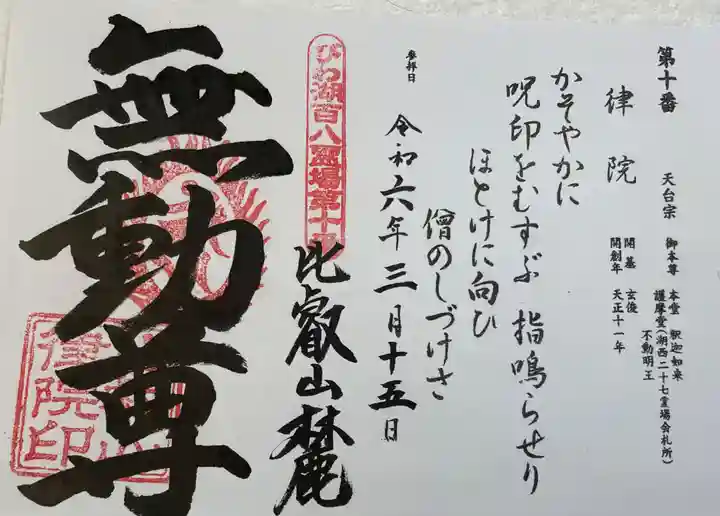 第十番
律院
天台宗
御本尊 本堂 釈迦如来
護摩堂(湖西二十七霊場会札所)
不動明王
開基 玄俊
開創年 天正十一年
かそやかに
呪印をむすぶ 指鳴らせり
ほとけに向ひ
僧のしづけさ
参拝日
令和六年三月十五日
びわ湖百八霊場第十番
比叡山麓
無動尊
律院印